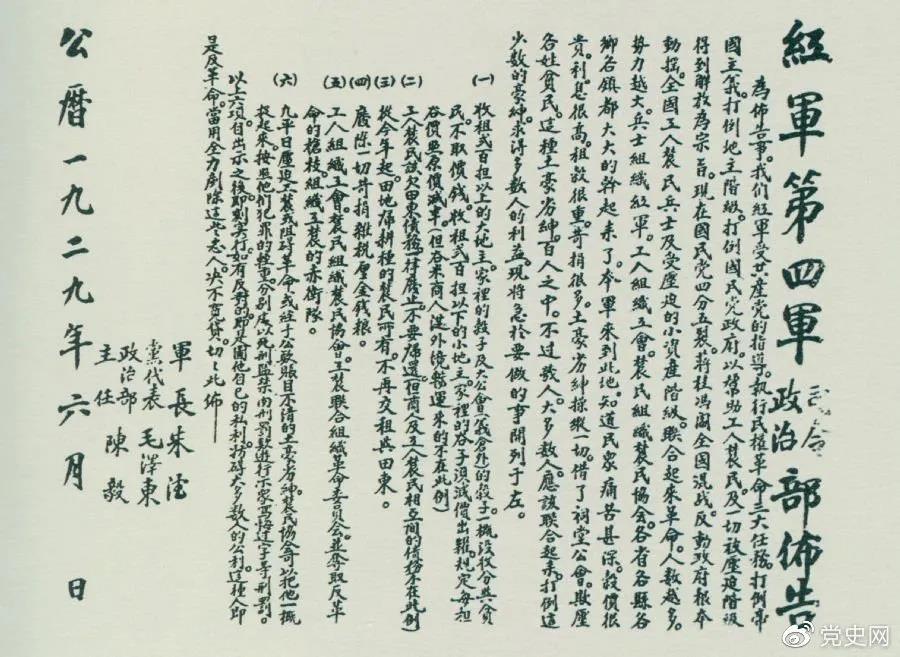 紅軍第四軍司令政治部佈告
為佈告事。我們紅軍受共產黨的指導。執行民權革命三大任務。打倒帝
國主義。打倒地主階級。打倒國民党政府。以幫助工人農民及一切被壓迫階級
得到解放為宗旨。現在國民黨四分五裂。蔣桂馮閻全國混战。反動政府根本
動搖。全國工人農民兵士及受壓迫的小資產階級。聯合起來革命。人數越多。
势力越大。兵士組織紅軍。工人組織工會。農民組織農民協会。各省各縣各
鄉各鎮都大大的幹起來了。本軍來到此地。知道民眾痛苦甚深。穀價很
貴。利息很高。租穀很重。苛捐很多。土豪劣紳操縱一切。借了祠堂公會。欺壓
各姓貧民。這種土豪劣紳。百人之中。不过数人。大多数人應該联合起來。打倒這
少数的豪紳。求得多数人的利益。現将急於要做的事開列于左。
(一)收租弍百担以上的大地主。家裡的穀子及大公會(義倉外)的穀子。一概沒收分與貧
民。不取價錢。收租弍百担以下的小地主。家裡的谷子。須減價出糶。規定每担
谷價照原價減半。(但谷米商人從外境轉運來的不在此例)
(二)工人農民該欠田東債務。一律廢止。不要歸還。(但商人及工人農民相互間的債務不在此例)
(三)從今年起。田地歸耕種的農民所有。不再交租與田東。
(四)廢除一切苛捐雜税厘金錢粮。
(五)工人組織工會。農民組織農民協會。工農聯合組織革命委員会。並奪取反革
命的槍枝。組織工農的赤衛隊。
(六)凡平日壓迫工農或阻碍革命。或經手公欵賬目不清的土豪劣紳。農民協會可以把他一概
捉起來。按照他们犯罪的輕重。分別處以死刑監禁肉刑罰欵遊行示眾写悔过字等刑罰。
以上六項。自出示之後即刻实行。如有反對的。即是圖他自己的私利。妨碍大多数人的公利。這種人即
是反革命。當用全力剷除這些人。决不寬貸。切切此佈
軍長朱德
黨代表毛澤東
政治部主任陳毅
公曆一九二九年六月 日
党史网